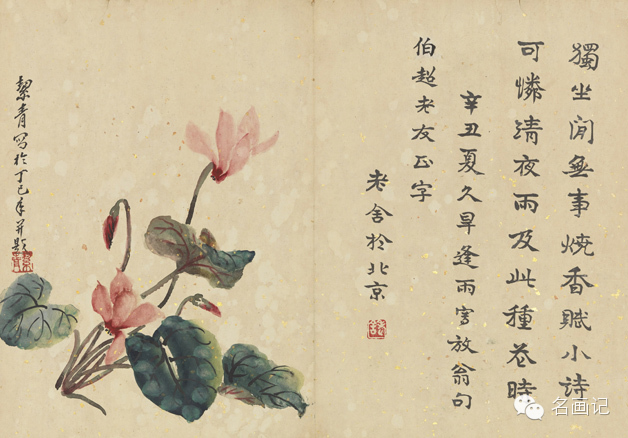 獨坐閒無事燒香賦小詩
可憐清夜雨及此種花時
辛丑夏久旱逢雨寫放翁句
伯超老友正字
老舍於北京
絜青寫於丁巳年并題
名画记